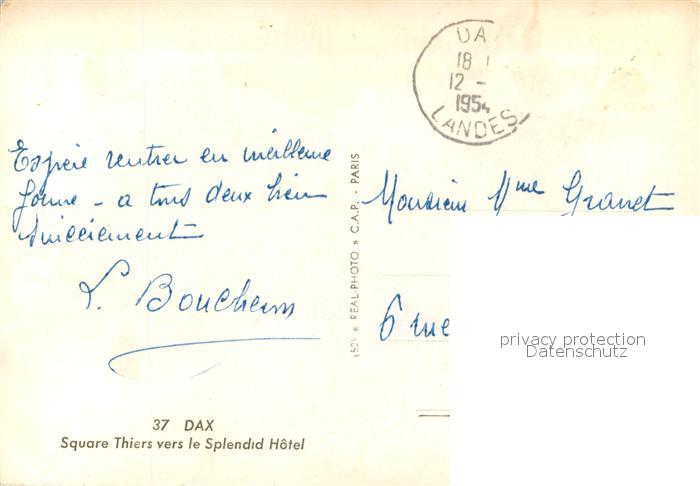 DA
18
12 -
1954
LANDES
Espère rentrer en meilleure
forme - a tous deux bien
sincèrement
L. Boucherons
37 DAX
Square Thiers vers le Splendid Hôtel
(50) « REAL-PHOTO » C.A.P. - PARIS
Monsieur Mme Granet
6 rue
privacy protection
Datenschutz